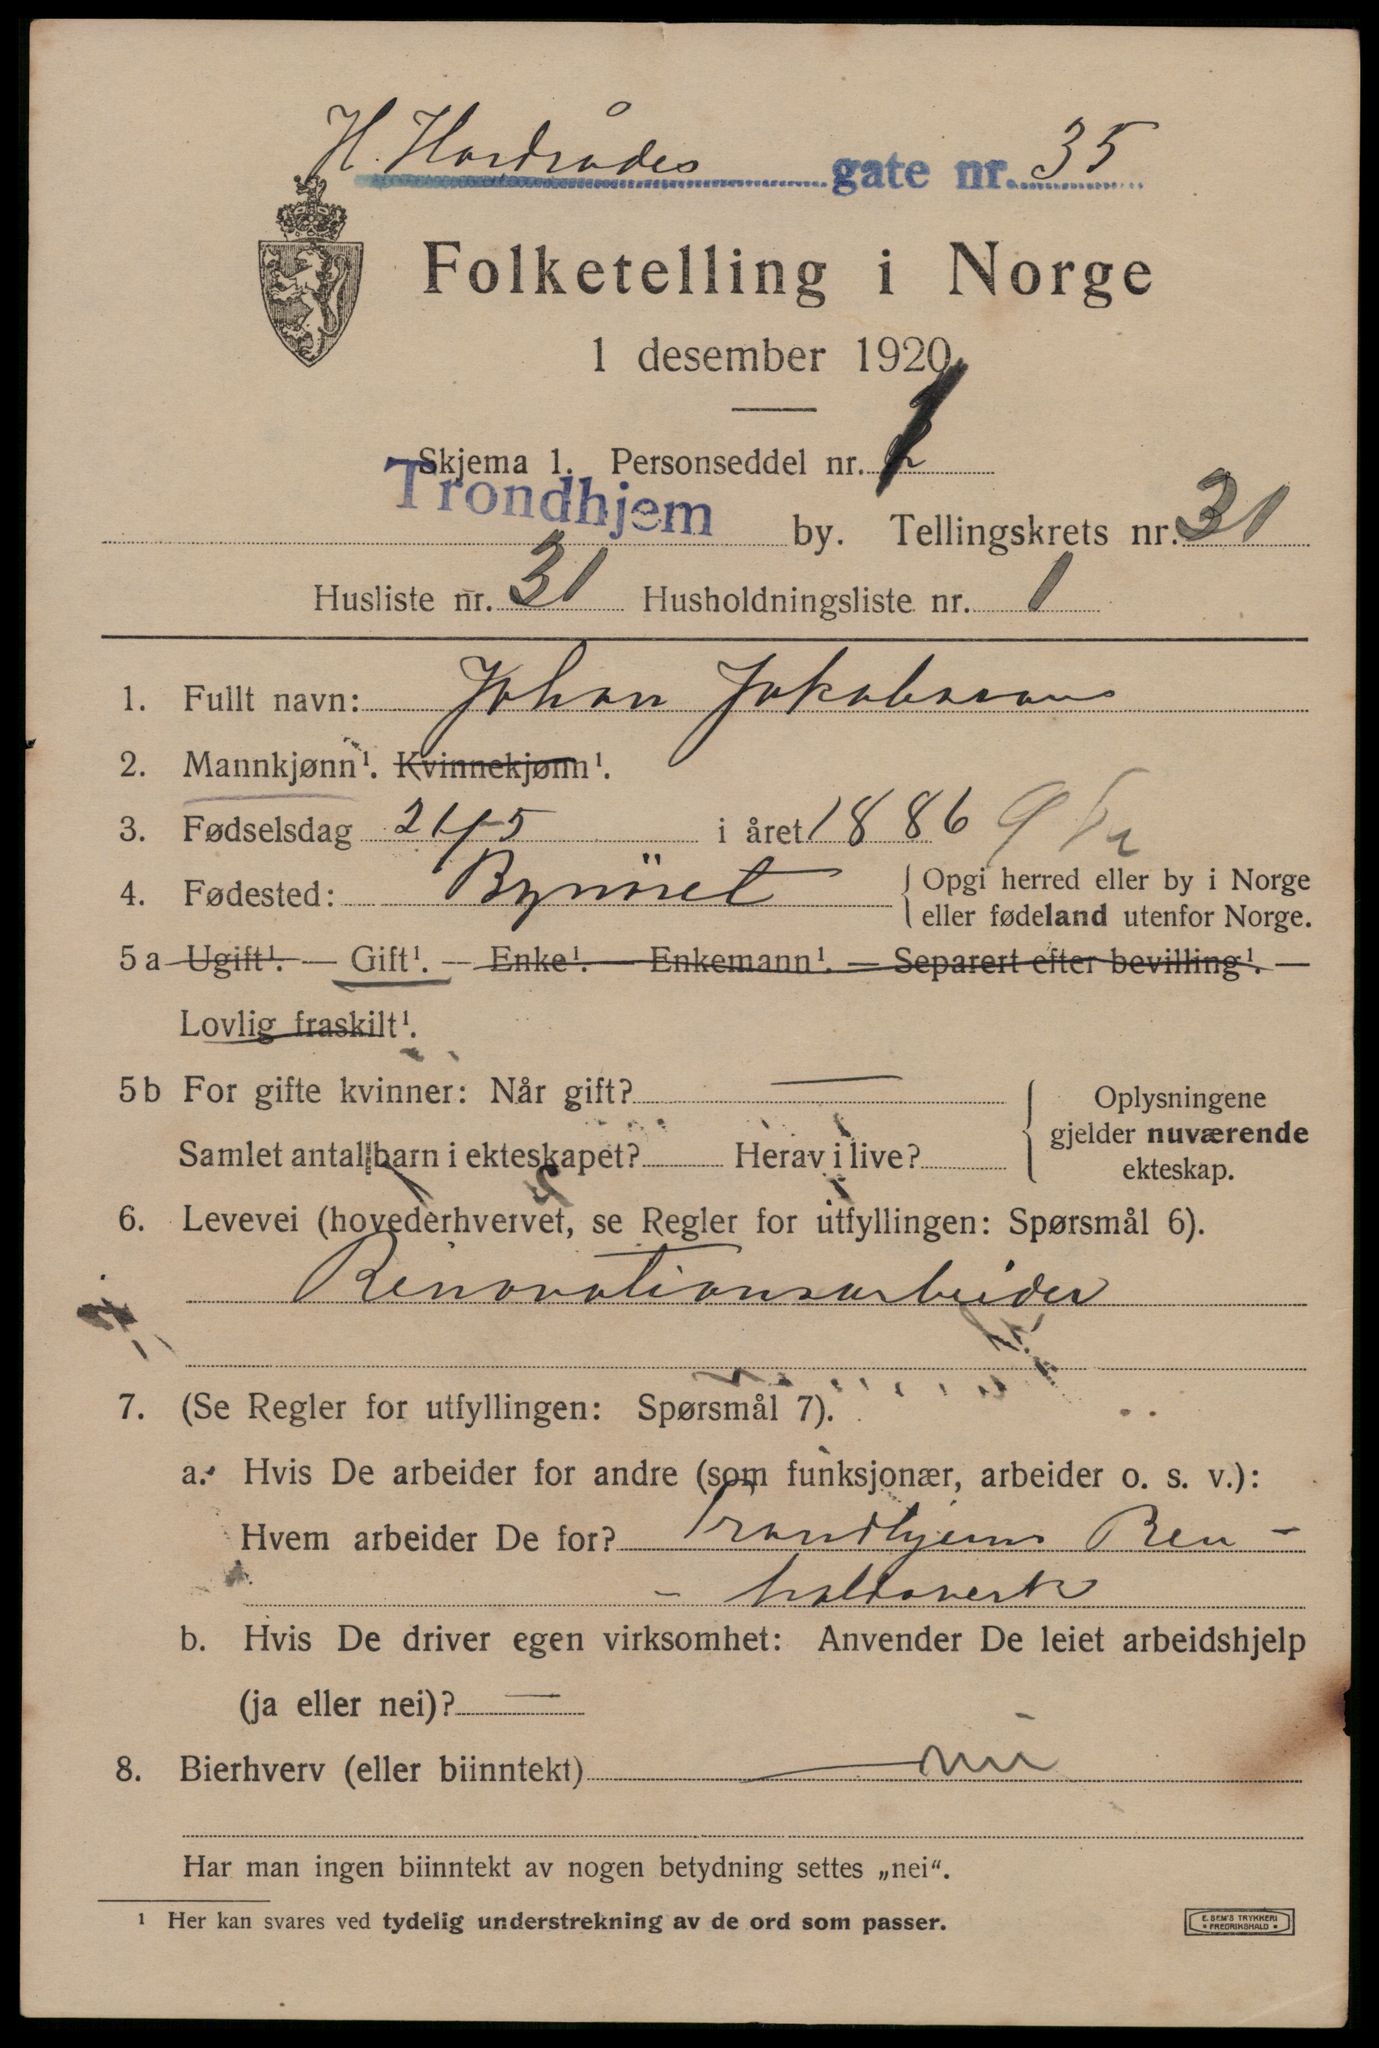 H. Hardrådes gate nr. 35
Folketelling i Norge
1 desember 1920.
Skjema 1. Personseddel nr. 1
Trondhjem by. Tellingskrets nr. 31
Husliste nr. 31 Husholdningsliste nr. 1
1. Fullt navn: Johan Jakobsen
2. Mannkjønn¹. Kvinnekjønn¹.
3. Fødselsdag 24/5 i året 1886
4. Fødested: Bynæset { Opgi herred eller by i Norge
eller fødeland utenfor Norge.
5 a Ugift¹. — Gift¹. — Enke¹. — Enkemann¹. — Separert efter bevilling¹. —
Lovlig fraskilt¹.
5 b For gifte kvinner: Når gift? —
Samlet antall barn i ekteskapet? Herav i live?
Oplysningene
gjelder nuværende
ekteskap.
6. Levevei (hovederhvervet, se Regler for utfyllingen: Spørsmål 6).
Renovationsarbeider
7. (Se Regler for utfyllingen: Spørsmål 7).
a. Hvis De arbeider for andre (som funksjonær, arbeider o. s. v.):
Hvem arbeider De for? Trondhjems Ren-
- holdsverk
b. Hvis De driver egen virksomhet: Anvender De leiet arbeidshjelp
(ja eller nei)? —
8. Bierhverv (eller biinntekt) — nei
Har man ingen biinntekt av nogen betydning settes „nei“.
¹ Her kan svares ved tydelig understrekning av de ord som passer.
E. SEM'S TRYKKERI
• FREDRIKSHALD •